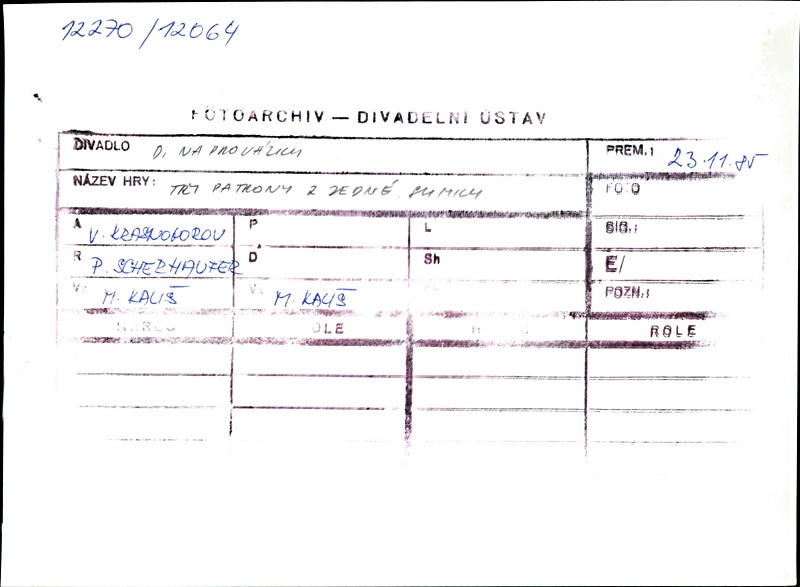 12270 / 12064
FOTOARCHIV — DIVADELNÍ ÚSTAV
DIVADLO D. NA PROVÁZKU PREM.: 23.11.85
NÁZEV HRY: TRY PATRONY Z JEDNÉ SUMICY FOTO
A V. KRASNOHOROV P L SIG.:
R P. SCHERHAUFER D Sh E/
V: M. KALIŠ V: M. KALIŠ POZN.:
ROLE